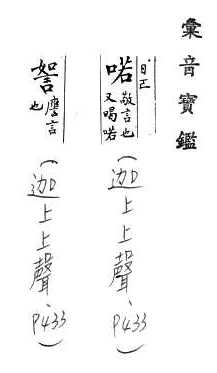 彙音寶鑑
日正
喏 敬言也
又喝喏
(迦上上聲、P433)
言
也
(迦上上聲、P433)